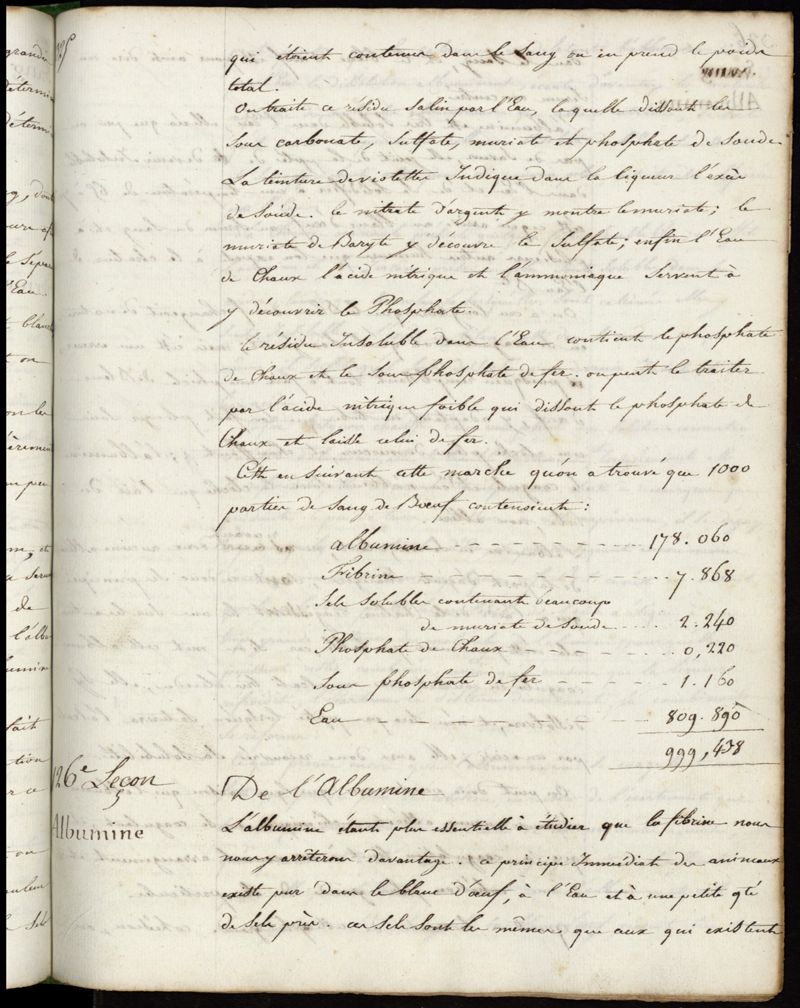 qui étoient contenus dans le Sang on en prend le poids
total.
On traite ce résidu Salin par l'Eau, laquelle dissout les
Sous carbonate, Sulfate, muriate et phosphate de Soude
La teinture de violettes Indique dans la liqueur l'excès
de Soude. le nitrate d'argent y montre le muriate; le
muriate de Baryte y découvre le Sulfate; enfin l'Eau
de Chaux l'acide nitrique et l'ammoniaque Servent à
y découvrir le Phosphate.
le résidu Insoluble dans l'Eau contient le phosphate
de Chaux et le Sous phosphate de fer. on peut le traiter
par l'acide nitrique foible qui dissout le phosphate de
Chaux et laisse celui de fer.
C'est en Suivant cette marche qu'on a trouvé que 1000
parties de Sang de Bœuf contenoient:
albumine 178.060
Fibrine 7.868
Sels solubles contenants beaucoup
de muriate de Soude 2.240
Phosphate de Chaux 0,220
Sous phosphate de fer 1.160
Eau 809.890
999,438
126e Leçon
De l'Albumine
Albumine
L'albumine étant plus essentielle à étudier que la fibrine nous
nous y arrêterons davantage. ce principe Immédiat des animaux
existe pur dans le blanc d'œuf, à l'Eau et à une petite qté
de Sels près. ces Sels sont les mêmes que ceux qui existent